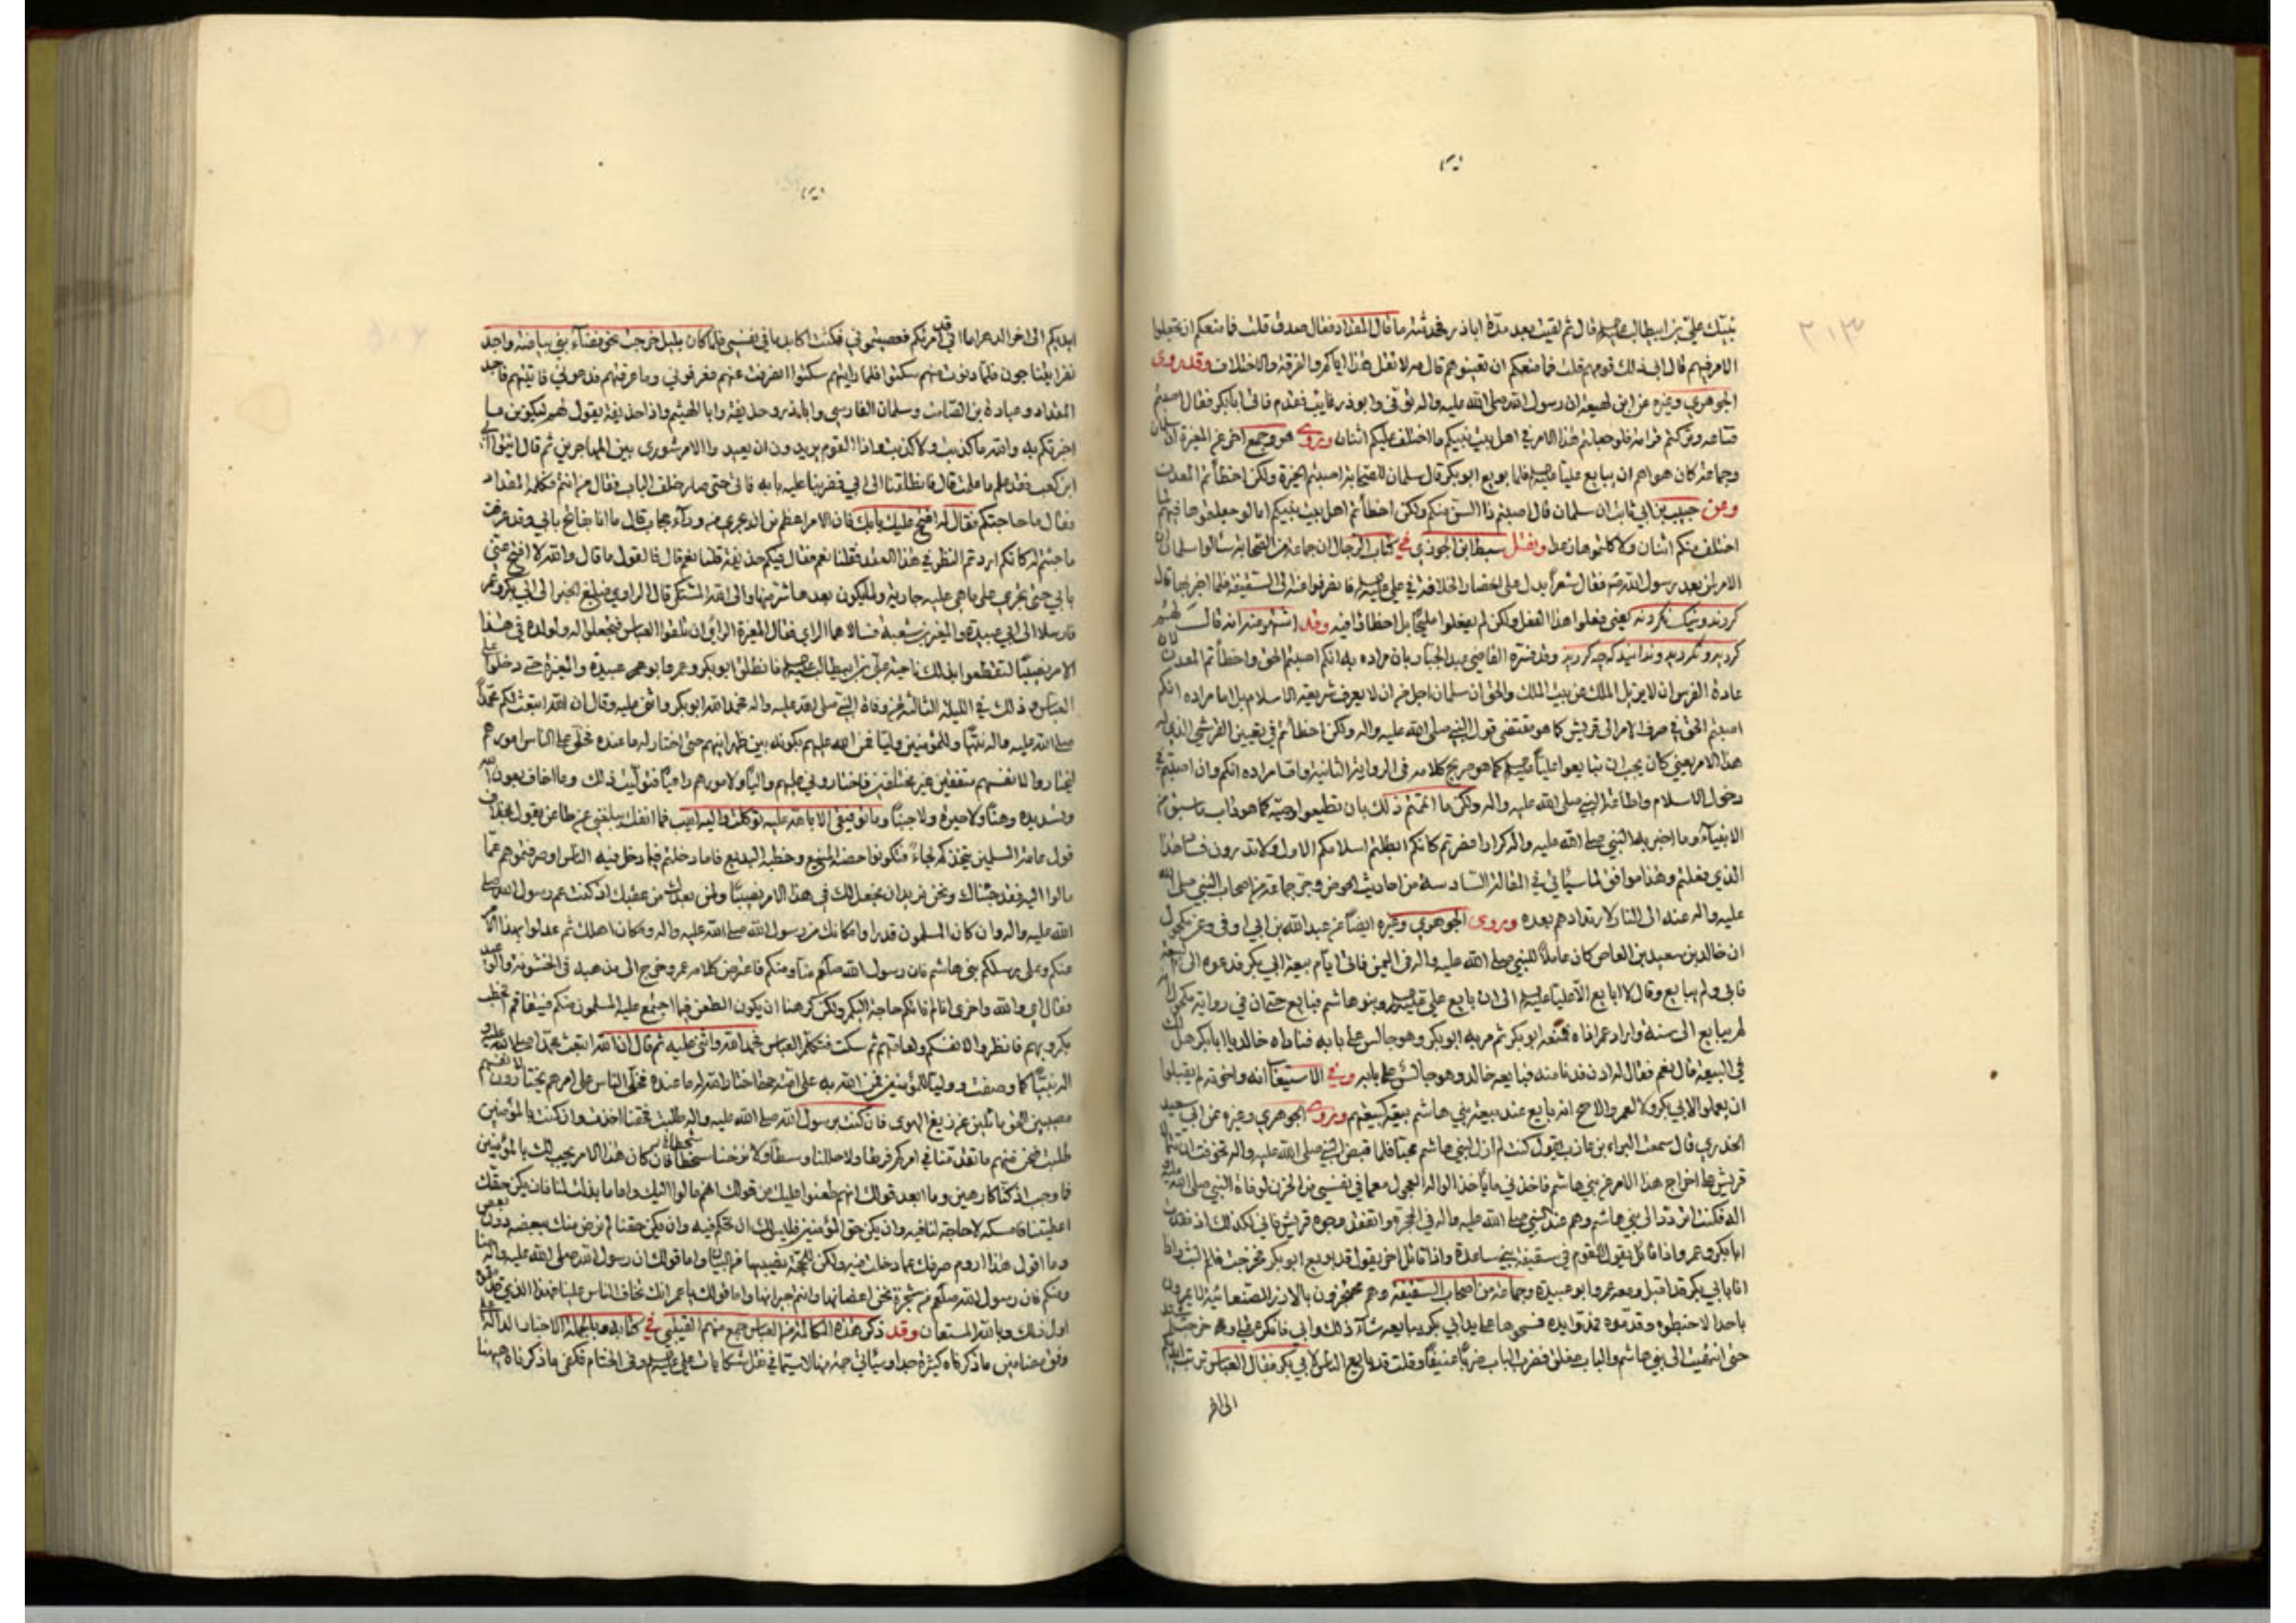 ٢١٣
بيتك علي بن ابيطالب قال ثم لقيت بعد مدة اباذر فحدثته ما قال المقداد فقال صدق قلت فما منعكم ان تجعلوا
الامر فيهم قال ابى ذلك قومهم قلت فما منعكم ان تعينوهم قال مه لا تقل هذا اياكم والفرقة والاختلاف وقد روى
الجوهري وغيره عن ابن لهيعة ان رسول الله صلى الله عليه واله توفي وابوذر غايب فقدم فاتى ابابكر فقال اصبتم
قناعه وتركتم قرابته فلو جعلتم هذا الامر في اهل بيت نبيكم ما اختلف عليكم اثنان وروى هو وجمع اخر عن المغيرة ان سلمان
وجماعة كان هواهم ان يبايع عليا فلما بويع ابوبكر قال سلمان للصحابة اصبتم الخيرة ولكن اخطأتم المعدن
وعن حبيب بن ابي ثابت ان سلمان قال اصبتم ذا السن منكم ولكن اخطأتم اهل بيت نبيكم اما لو جعلتموها فيهم ما
اختلف منكم اثنان ولاكلتموها رغدا ونقل سبط ابن الجوزي في كتاب الرجال ان جماعة من الصحابة سألوا سلمان
الامر لمن بعد رسول الله فقال شعرا يدل على انحصار الخلافة في علي فانصرفوا الى السقيفة فلما اخبر بها قال
كردند ونيك نكردند يعني فعلوا هذا الفعل ولكن لم يفعلوا مليحا بل اخطأوا فيه وقد اشتهر عنه انه قال لهم
كرديد ونكرديد وندانيد كه چه كرديد وقد فسره القاضي عبد الجبار بان مراده به انكم اصبتم الحق واخطأتم المعدن لان
عادة الفرس ان لا يزيل الملك عن بيت الملك والحق ان سلمان اجل من ان لا يعرف شريعة الاسلام بل اما مراده انكم
اصبتم الحق في صرف الامر الى قريش كما هو مقتضى قول النبي صلى الله عليه واله ولكن اخطأتم في تعيين القرشي الذي له
هذا الامر يعني كان يجب ان تبايعوا عليا كما هو صريح كلامه في الرواية الثانية واما مراده انكم وان اصبتم في
دخول الاسلام واطاعة النبي صلى الله عليه واله ولكن ما اتممتم ذلك بان تطيعوا وصيه كما هو داب سابق
الانبياء وما اخبر به النبي صلى الله عليه واله كرارا فصرتم كانكم ابطلتم اسلامكم الاول ولا تدرون فساد هذا
الذي فعلتم وهذا موافق لما سيأتي في المقالة السادسة من احاديث الحوض وجر جماعة من اصحاب النبي صلى الله
عليه واله عنه الى النار لارتدادهم بعده وروى الجوهري وغيره ايضا عن عبد الله بن ابي اوفى وعن مكحول
ان خالد بن سعيد بن العاص كان عاملا للنبي صلى الله عليه واله في اليمن فاتى ايام بيعة ابي بكر فدعوه الى البيعة
فابى ولم يبايع وقال لا ابايع الا عليا الى ان بايع علي وبنو هاشم فبايع حتى ان في رواية مكحول انه
لم يبايع الى سنة واراد عمر اذاه فمنعه ابوبكر ثم مر به ابوبكر وهو جالس على بابه فناداه خالد يا ابابكر هل لك
في البيعة قال نعم فقال له ادن فدنا منه فبايعه خالد وهو جالس على بابه وفي الاستيعاب انه واخوته لم يقبلوا
ان يعملوا لابي بكر ولا لعمر والاصح انه بايع عند بيعة بني هاشم بيعة كبيعتهم وروى الجوهري وغيره عن ابي سعيد
الخدري قال سمعت البراء بن عازب يقول كنت لم ازل لبني هاشم محبا فلما قبض النبي صلى الله عليه واله تخوفت ان تتمالا
قريش على اخراج هذا الامر من بني هاشم فاخذني ما ياخذ الواله العجول مع ما في نفسي من الحزن لوفاة النبي صلى الله عليه و
اله فكنت اتردد الى بني هاشم وهم عند النبي صلى الله عليه واله في الحجرة واتفقد وجوه قريش فاني لكذلك اذ فقدت
ابابكر وعمر واذا قائل يقول القوم في سقيفة بني ساعدة واذا قائل اخر يقول قد بويع ابوبكر فخرجت فلم البث واذا
انا بابي بكر قد اقبل ومعه عمر وابو عبيدة وجماعة من اصحاب السقيفة وهم محتجزون بالازر الصنعانية لا يمرون
باحد الا خبطوه وقدموه فمدوا يده فمسحوها على يد ابي بكر يبايعه شاء ذلك او ابى فانكرت عقلي وخرجت اشتد
حتى انتهيت الى بني هاشم والباب مغلق فضربت الباب ضربا عنيفا وقلت قد بايع الناس لابي بكر فقال العباس تربت ايديكم
الى اخر
ايديكم الى اخر الدهر اما اني قد امرتكم فعصيتموني فمكثت اكابد ما في نفسي فلما كان بليل خرجت نحو فضاء بني بياضة واجد
نفرا يتناجون فلما دنوت منهم سكتوا فلما رايتهم سكتوا انصرفت عنهم فعرفوني وما عرفتهم فدعوني فاتيتهم فاجد
المقداد وعبادة بن الصامت وسلمان الفارسي واباذر وحذيفة وابا الهيثم واذا حذيفة يقول لهم ليكونن ما
اخبرتكم به والله ما كذبت ولا كذبت واذا القوم يريدون ان يعيدوا الامر شورى بين المهاجرين ثم قال ايتوا ابي
ابن كعب فقد علم ما علمت قال فانطلقنا الى ابي فضربنا عليه بابه فاتى حتى صار خلف الباب فقال من انتم فكلمه المقداد
فقال ما حاجتكم فقال له افتح عليك بابك فان الامر اعظم من ان يجري من وراء حجاب قال ما انا بفاتح بابي وقد عرفت
ما جئتم له كانكم اردتم النظر في هذا العقد فقلنا نعم فقال افيكم حذيفة قلنا نعم قال فالقول ما قال والله لا افتح عني
بابي حتى يجري على ما هي عليه جارية ولما يكون بعدها شر منها والى الله المشتكى قال الراوي فبلغ الخبر الى ابي بكر وعمر
فارسلا الى ابي عبيدة والمغيرة بن شعبة فسالاهما الراي فقال المغيرة الراي ان تلقوا العباس فتجعلوا له ولولده في هذا
الامر نصيبا لتقطعوا بذلك ناحية علي بن ابيطالب فانطلق ابوبكر وعمر وابو عبيدة والمغيرة حتى دخلوا على
العباس وذلك في الليلة الثانية من وفاة النبي صلى الله عليه واله فحمد الله ابوبكر واثنى عليه وقال ان الله ابتعث لكم محمدا
صلى الله عليه واله نبيا وللمؤمنين وليا فمن الله عليهم بكونه بين ظهرانيهم حتى اختار له ما عنده فخلى على الناس امورهم
ليختاروا لانفسهم متفقين غير مختلفين فاختاروني عليهم واليا ولامورهم راعيا فتوليت ذلك وما اخاف بعون الله
وتسديده وهنا ولا حيرة ولا جبنا وما توفيقي الا بالله عليه توكلت واليه انيب فما انفك يبلغني عن طاعن يقول بخلاف
قول عامة المسلمين يتخذكم لجاء فتكونوا حصنه المنيع وخطبه البديع فاما دخلتم فيما دخل فيه الناس او صرفتموهم عما
مالوا اليه فقد جئناك ونحن نريد ان نجعل لك في هذا الامر نصيبا ولمن بعدك من عقبك اذ كنت عم رسول الله صلى
الله عليه واله وان كان المسلمون قد راوا مكانك من رسول الله صلى الله عليه واله ومكان اهلك ثم عدلوا بهذا الامر
عنكم وعلى رسلكم بني هاشم فان رسول الله صلعم منا ومنكم فاعترض كلامه عمر وخرج الى مذهبه في الخشونة والوعيد
فقال اي والله واخرى انا لم ناتكم حاجة اليكم ولكن كرهنا ان يكون الطعن فيما اجتمع عليه المسلمون منكم فيتفاقم الخطب
بكم وبهم فانظروا لانفسكم ولعامتهم ثم سكت فتكلم العباس فحمد الله واثنى عليه ثم قال ان الله ابتعث محمدا صلى الله عليه و
اله نبيا كما وصفت ووليا للمؤمنين فمن الله به على امته حتى اختار الله له ما عنده فخلى الناس على امرهم يختارون لانفسهم
مصيبين الحق مائلين عن زيغ الهوى فان كنت برسول الله صلى الله عليه واله طلبت فحقنا اخذت وان كنت بالمؤمنين
طلبت فنحن منهم ما تقدمنا في امركم فرطا ولا حللنا وسطا ولا نزحنا شحطا فان كان هذا الامر يجب لك بالمؤمنين
فما وجب اذ كنا كارهين وما ابعد قولك انهم طعنوا عليك من قولك انهم مالوا اليك واما ما بذلت لنا فان يكن حقك
اعطيتنا فامسكه لا حاجة لنا فيه وان يكن حق المؤمنين فليس لك ان تحكم فيه وان يكن حقنا لم نرض منك ببعضه دون بعض
وما اقول هذا اروم صرفك عما دخلت فيه ولكن للحجة نصيبها من البيان واما قولك ان رسول الله صلى الله عليه واله منا
ومنكم فان رسول الله صلعم من شجرة نحن اغصانها وانتم جيرانها واما قولك يا عمر انك تخاف الناس علينا فهذا الذي قدمتموه
اول ذلك وبالله المستعان وقد ذكر هذه المكالمة من العباس جمع منهم القتيبي في كتابه وبالجملة الاخبار الدالة على
وفق مضامين ما ذكرناه كثيرة جدا وسيأتي جملة منها لا سيما في نقل شكايات علي وفي الختام فكفى ما ذكرناه ههنا